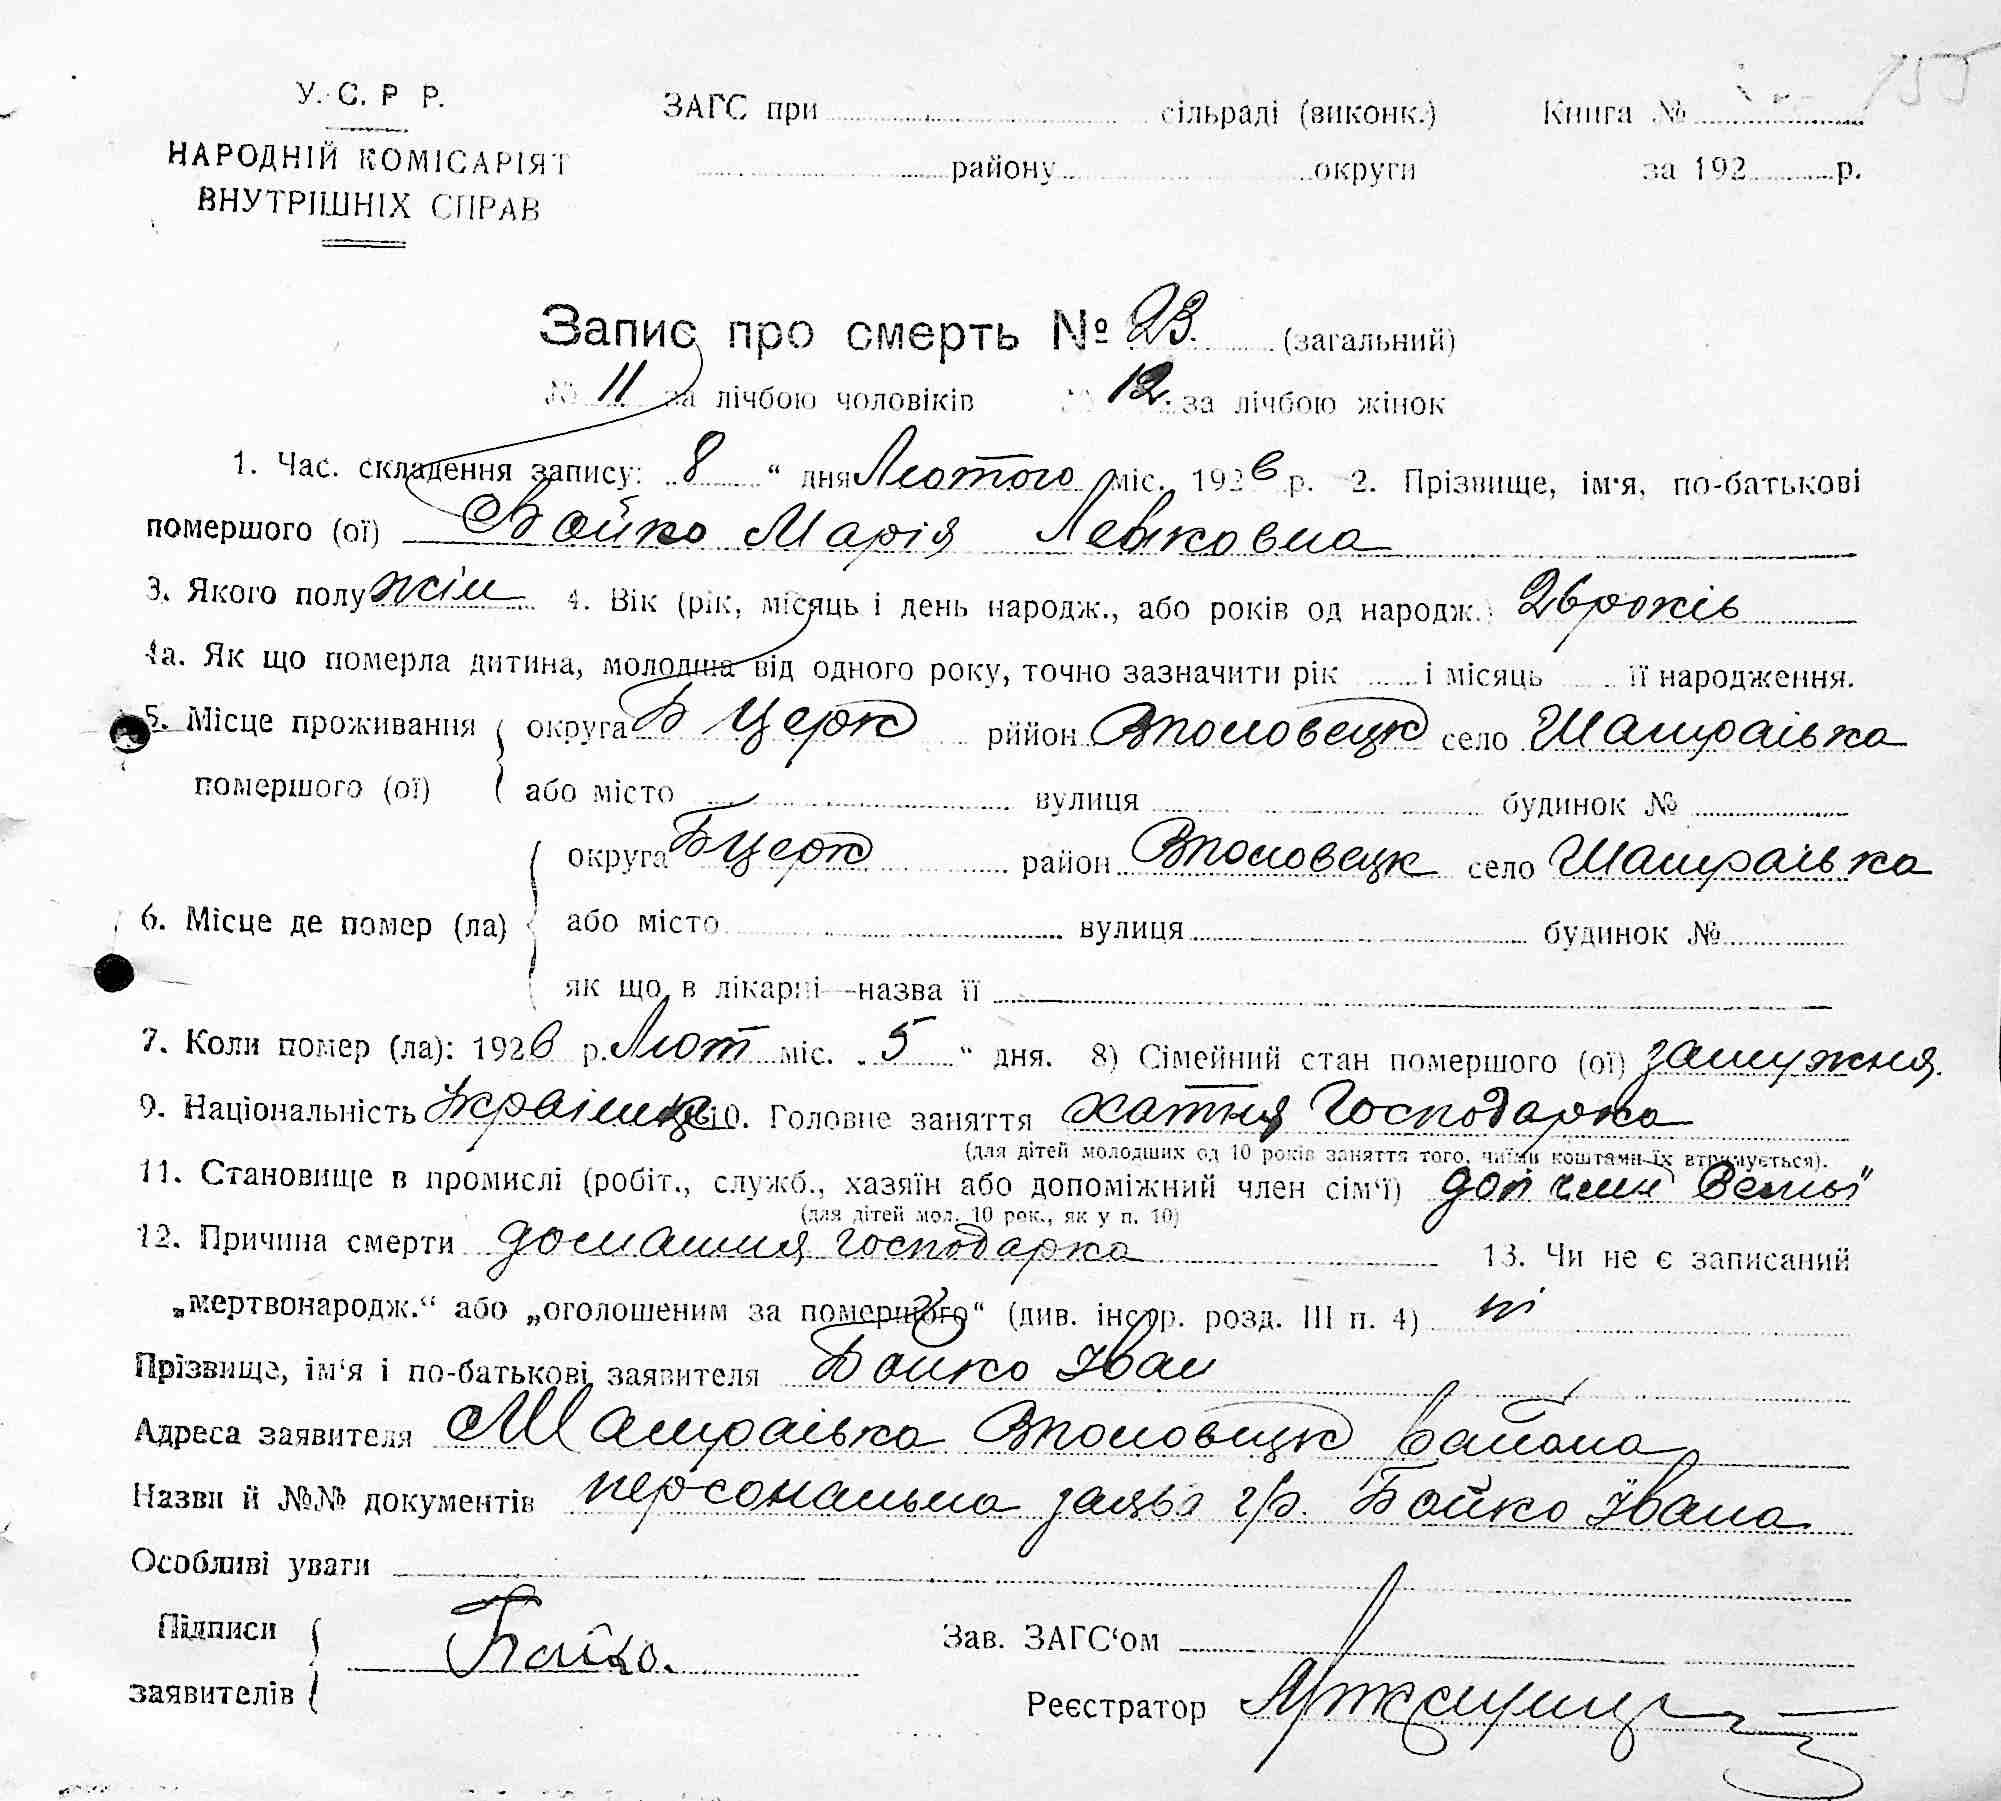 155
У. С. Р. Р.
ЗАГС при сільраді (виконк.) Книга №
НАРОДНІЙ КОМІСАРІЯТ
району округи за 192 р.
ВНУТРІШНІХ СПРАВ
Запис про смерть № 23. (загальний)
№ 11 за лічбою чоловіків № 12. за лічбою жінок
1. Час. складення запису: 8 “ дня Лютого міс. 1926 р. 2. Прізвище, ім‘я, по-батькові
помершого (ої) Бойко Марія Левковна
3. Якого полу жін 4. Вік (рік, місяць і день народж., або років од народж.) 26 років
4а. Як що померла дитина, молодша від одного року, точно зазначити рік і місяць її народження.
5. Місце проживання округа Б Церк рийон Вполовецк село Шамраівка
помершого (ої) або місто вулиця будинок №
округа БЦерк район Вполовецк село Шамраівка
6. Місце де помер (ла) або місто вулиця будинок №
як що в лікарні—назва її
7. Коли помер (ла): 1926 р. Лют міс. 5 “ дня. 8) Сімейний стан помершого (ої) замужня.
9. Національність Українка 10. Головне заняття хатня господарка
(для дітей молодших од 10 років заняття того, чиїми коштами їх втримується).
11. Становище в промислі (робіт., служб., хазяїн або допоміжний член сім‘ї) доп член
(для дітей мол. 10 рок., як у п. 10)
12. Причина смерти домашня господарка 13. Чи не є записаний
„мертвонародж.“ або „оголошеним за помершого“ (див. інстр. розд. III п. 4) ні
Прізвище, ім‘я і по-батькові заявителя Бойко Іван
Адреса заявителя Шамраівка Вполовецк района
Назви й №№ документів персональна заява гр. Бойко Івана
Особливі уваги
Підписи Бойко. Зав. ЗАГС‘ом
заявителів
Реєстратор